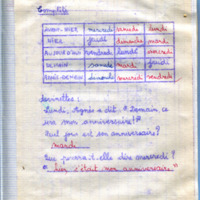 Complète
AVANT-HIER mercredi samedi lundi
HIER jeudi dimanche mardi
AUJOURD'HUI vendredi lundi mercredi
DEMAIN samedi mardi jeudi
APRÈS-DEMAIN dimanche mercredi vendredi
devinettes :
Lundi, Agnès a dit : "Demain, ce
sera mon anniversaire !"
Quel jour est son anniversaire ?
mardi
Que pourra-t-elle dire mercredi ?
"hier c'était mon anniversaire"